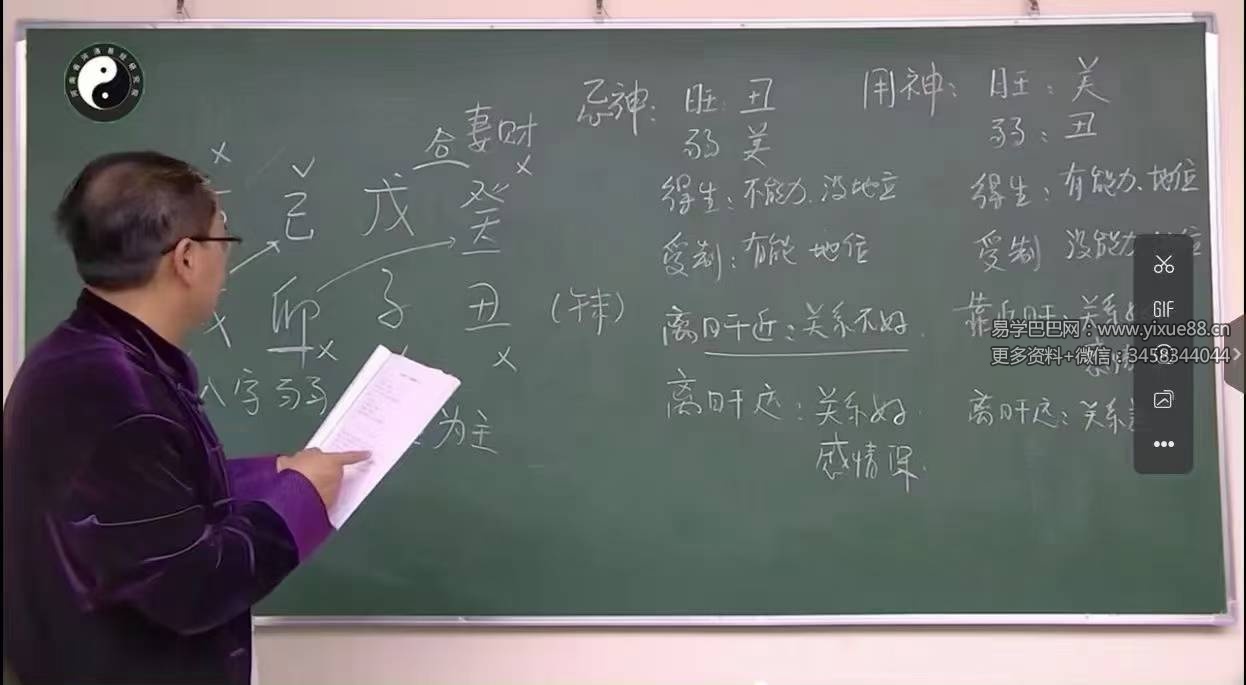 合 妻财
己 戊 癸
卯 子 丑
八字弱
为主
忌神：旺 丑
弱 美
得生：不能力.没地位
受制：有能 地位
离日干近：关系不好.
离日干远：关系好.
感情深.
用神：旺：美
弱：丑
得生：有能力.地位
受制 没能力
离日干远：关系
GIF
易学巴巴网：www.yixue88.cn
更多资料+微信：3458344044